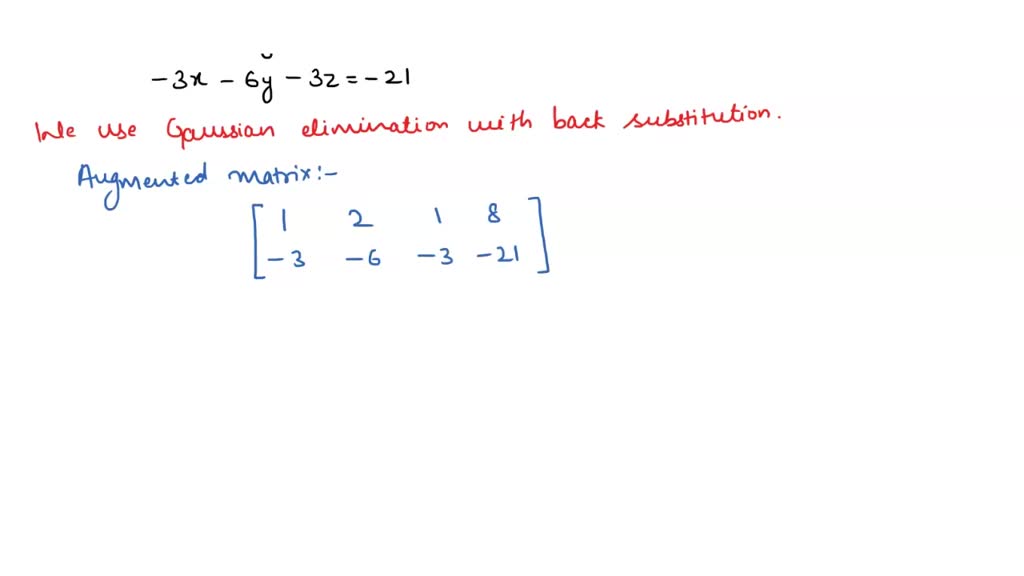 -3x - 6y - 3z = -21
We use Gaussian elimination with back substitution.
Augmented matrix:-
1 2 1 8
-3 -6 -3 -21